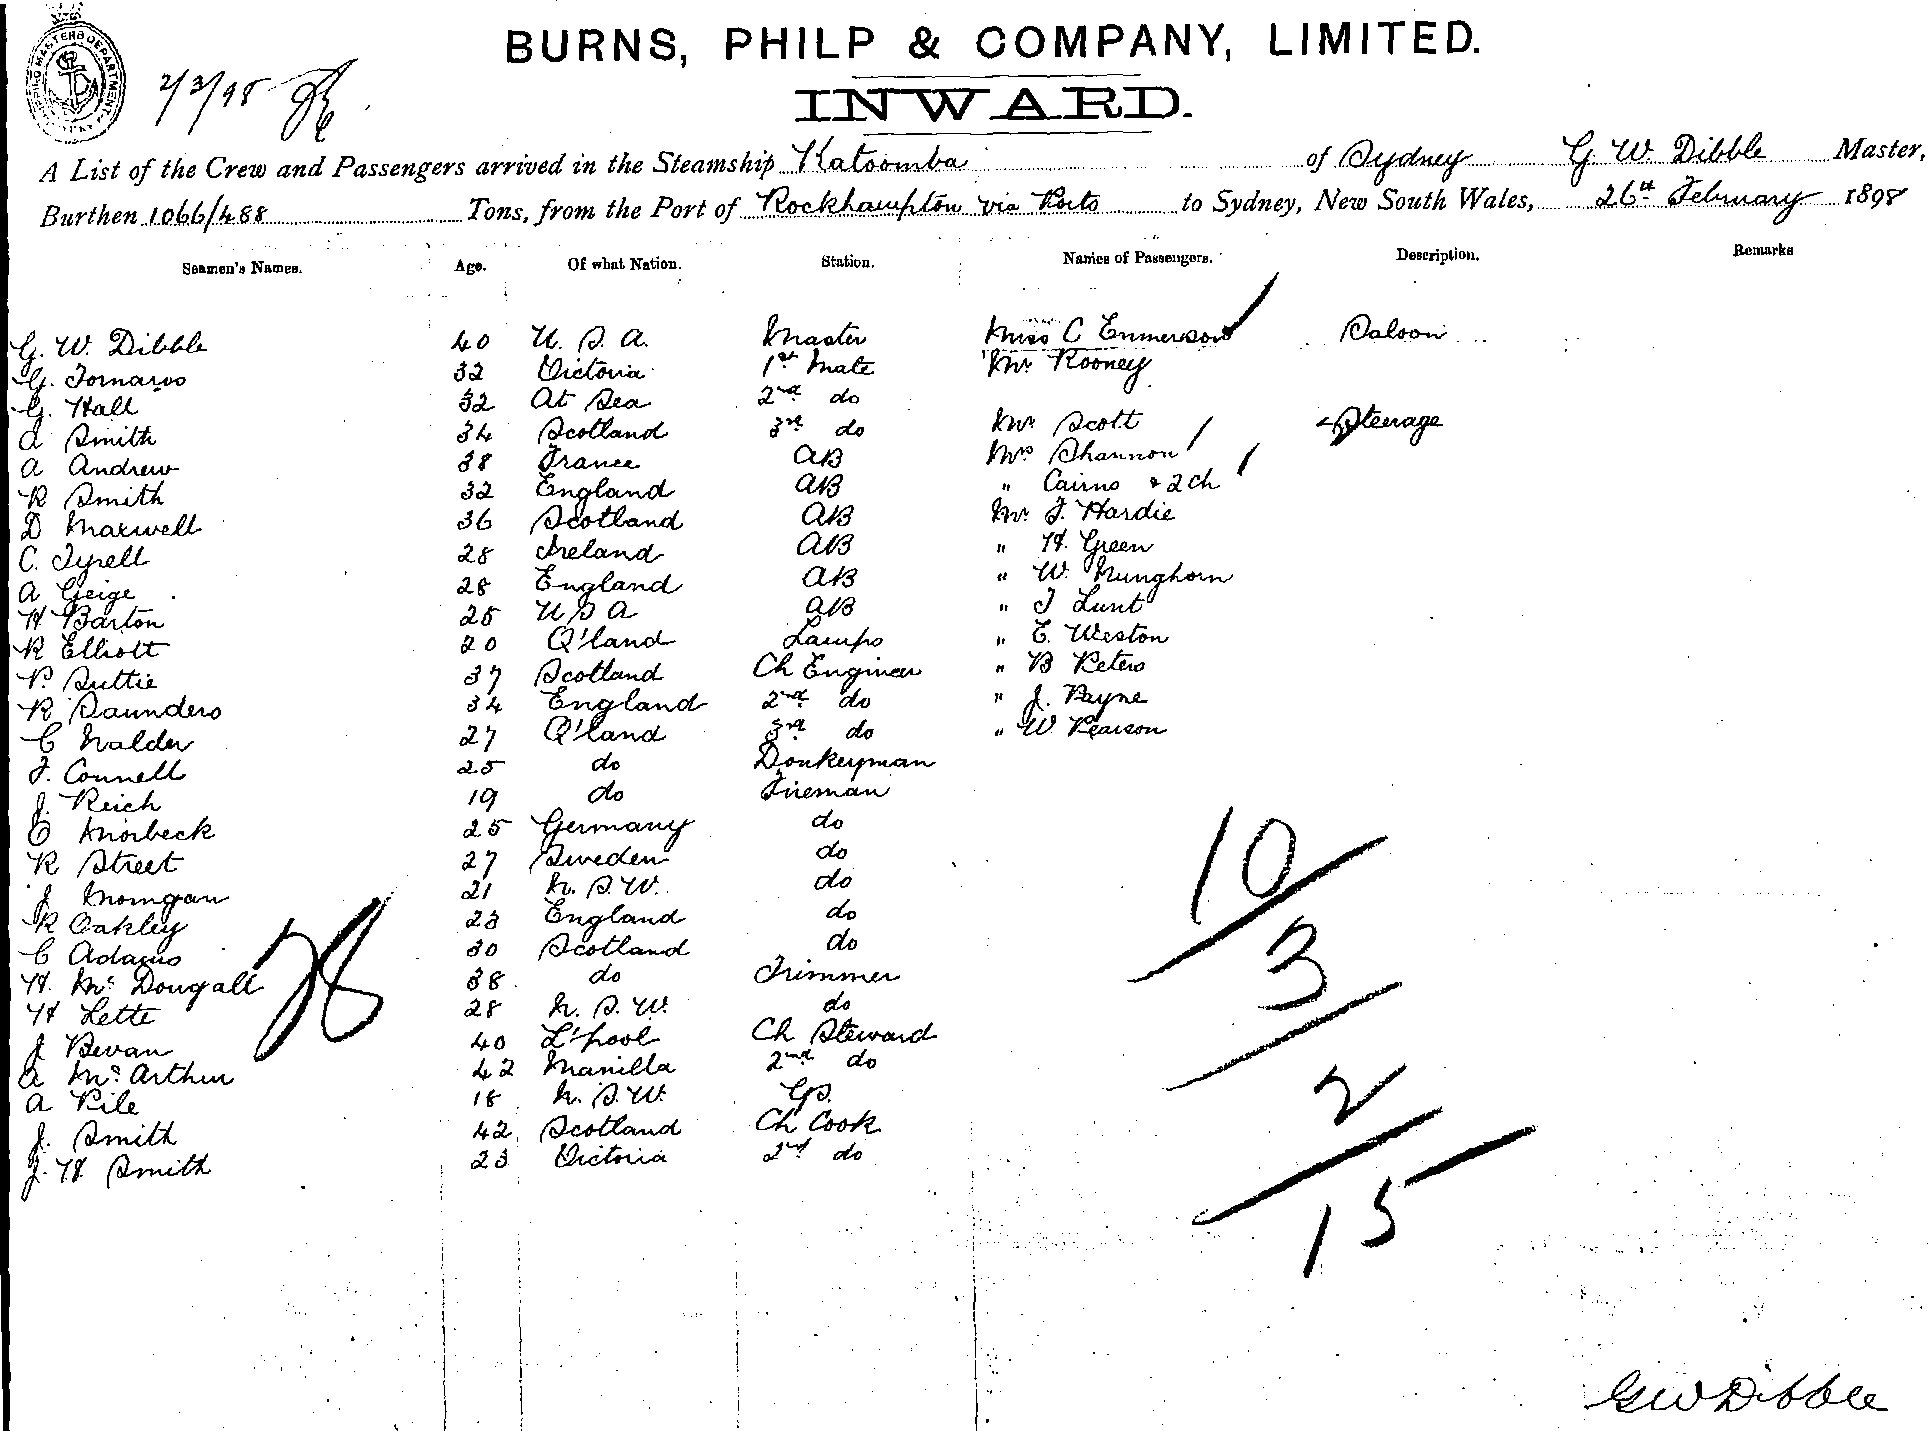 2/3/98
BURNS, PHILP & COMPANY, LIMITED.
INWARD.
A List of the Crew and Passengers arrived in the Steamship Katoomba of Sydney G W Dibble Master,
Burthen 1066/488 Tons, from the Port of Rockhampton via Ports to Sydney, New South Wales, 26th February 1898
Seamen's Names. Age. Of what Nation. Station. Names of Passengers. Description. Remarks
G. W. Dibble 40 U. S. A. Master Miss C Emmerson Saloon
G. Tornaros 32 Victoria 1st Mate Mr Rooney
G. Hall 32 At Sea 2nd do
A Smith 34 Scotland 3rd do Mr Scott Steerage
A Andrew 38 France AB Mrs Shannon
R Smith 32 England AB " Cairns & 2 ch
D Maxwell 36 Scotland AB Mr J. Hardie
C. Tyrell 28 Ireland AB " H. Green
A Geige 28 England AB " W. Nunghorn
H Barton 25 U S A AB " J Lunt
R Elliott 20 Q'land Lamps " E. Weston
P. Suttie 37 Scotland Ch Engineer " B Peters
R Saunders 34 England 2nd do " J. Payne
C Nalder 27 Q'land 3rd do " W Pearson
J. Connell 25 do Donkeyman
J. Reich 19 do Fireman
C Knorbeck 25 Germany do
R Street 27 Sweden do
J 21 N. S. W. do
R Oakley 23 England do
C Adams 30 Scotland do
H. McDougall 38 do Trimmer
H Lette 28 N. S. W. do
J Bevan 40 L'pool Ch Steward
A McArthur 42 Manilla 2nd do
A Pile 18 N. S. W. GS.
J. Smith 42 Scotland Ch Cook
J. H. Smith 23 Victoria 2nd do
28
10
3
2
15
GW Dibble